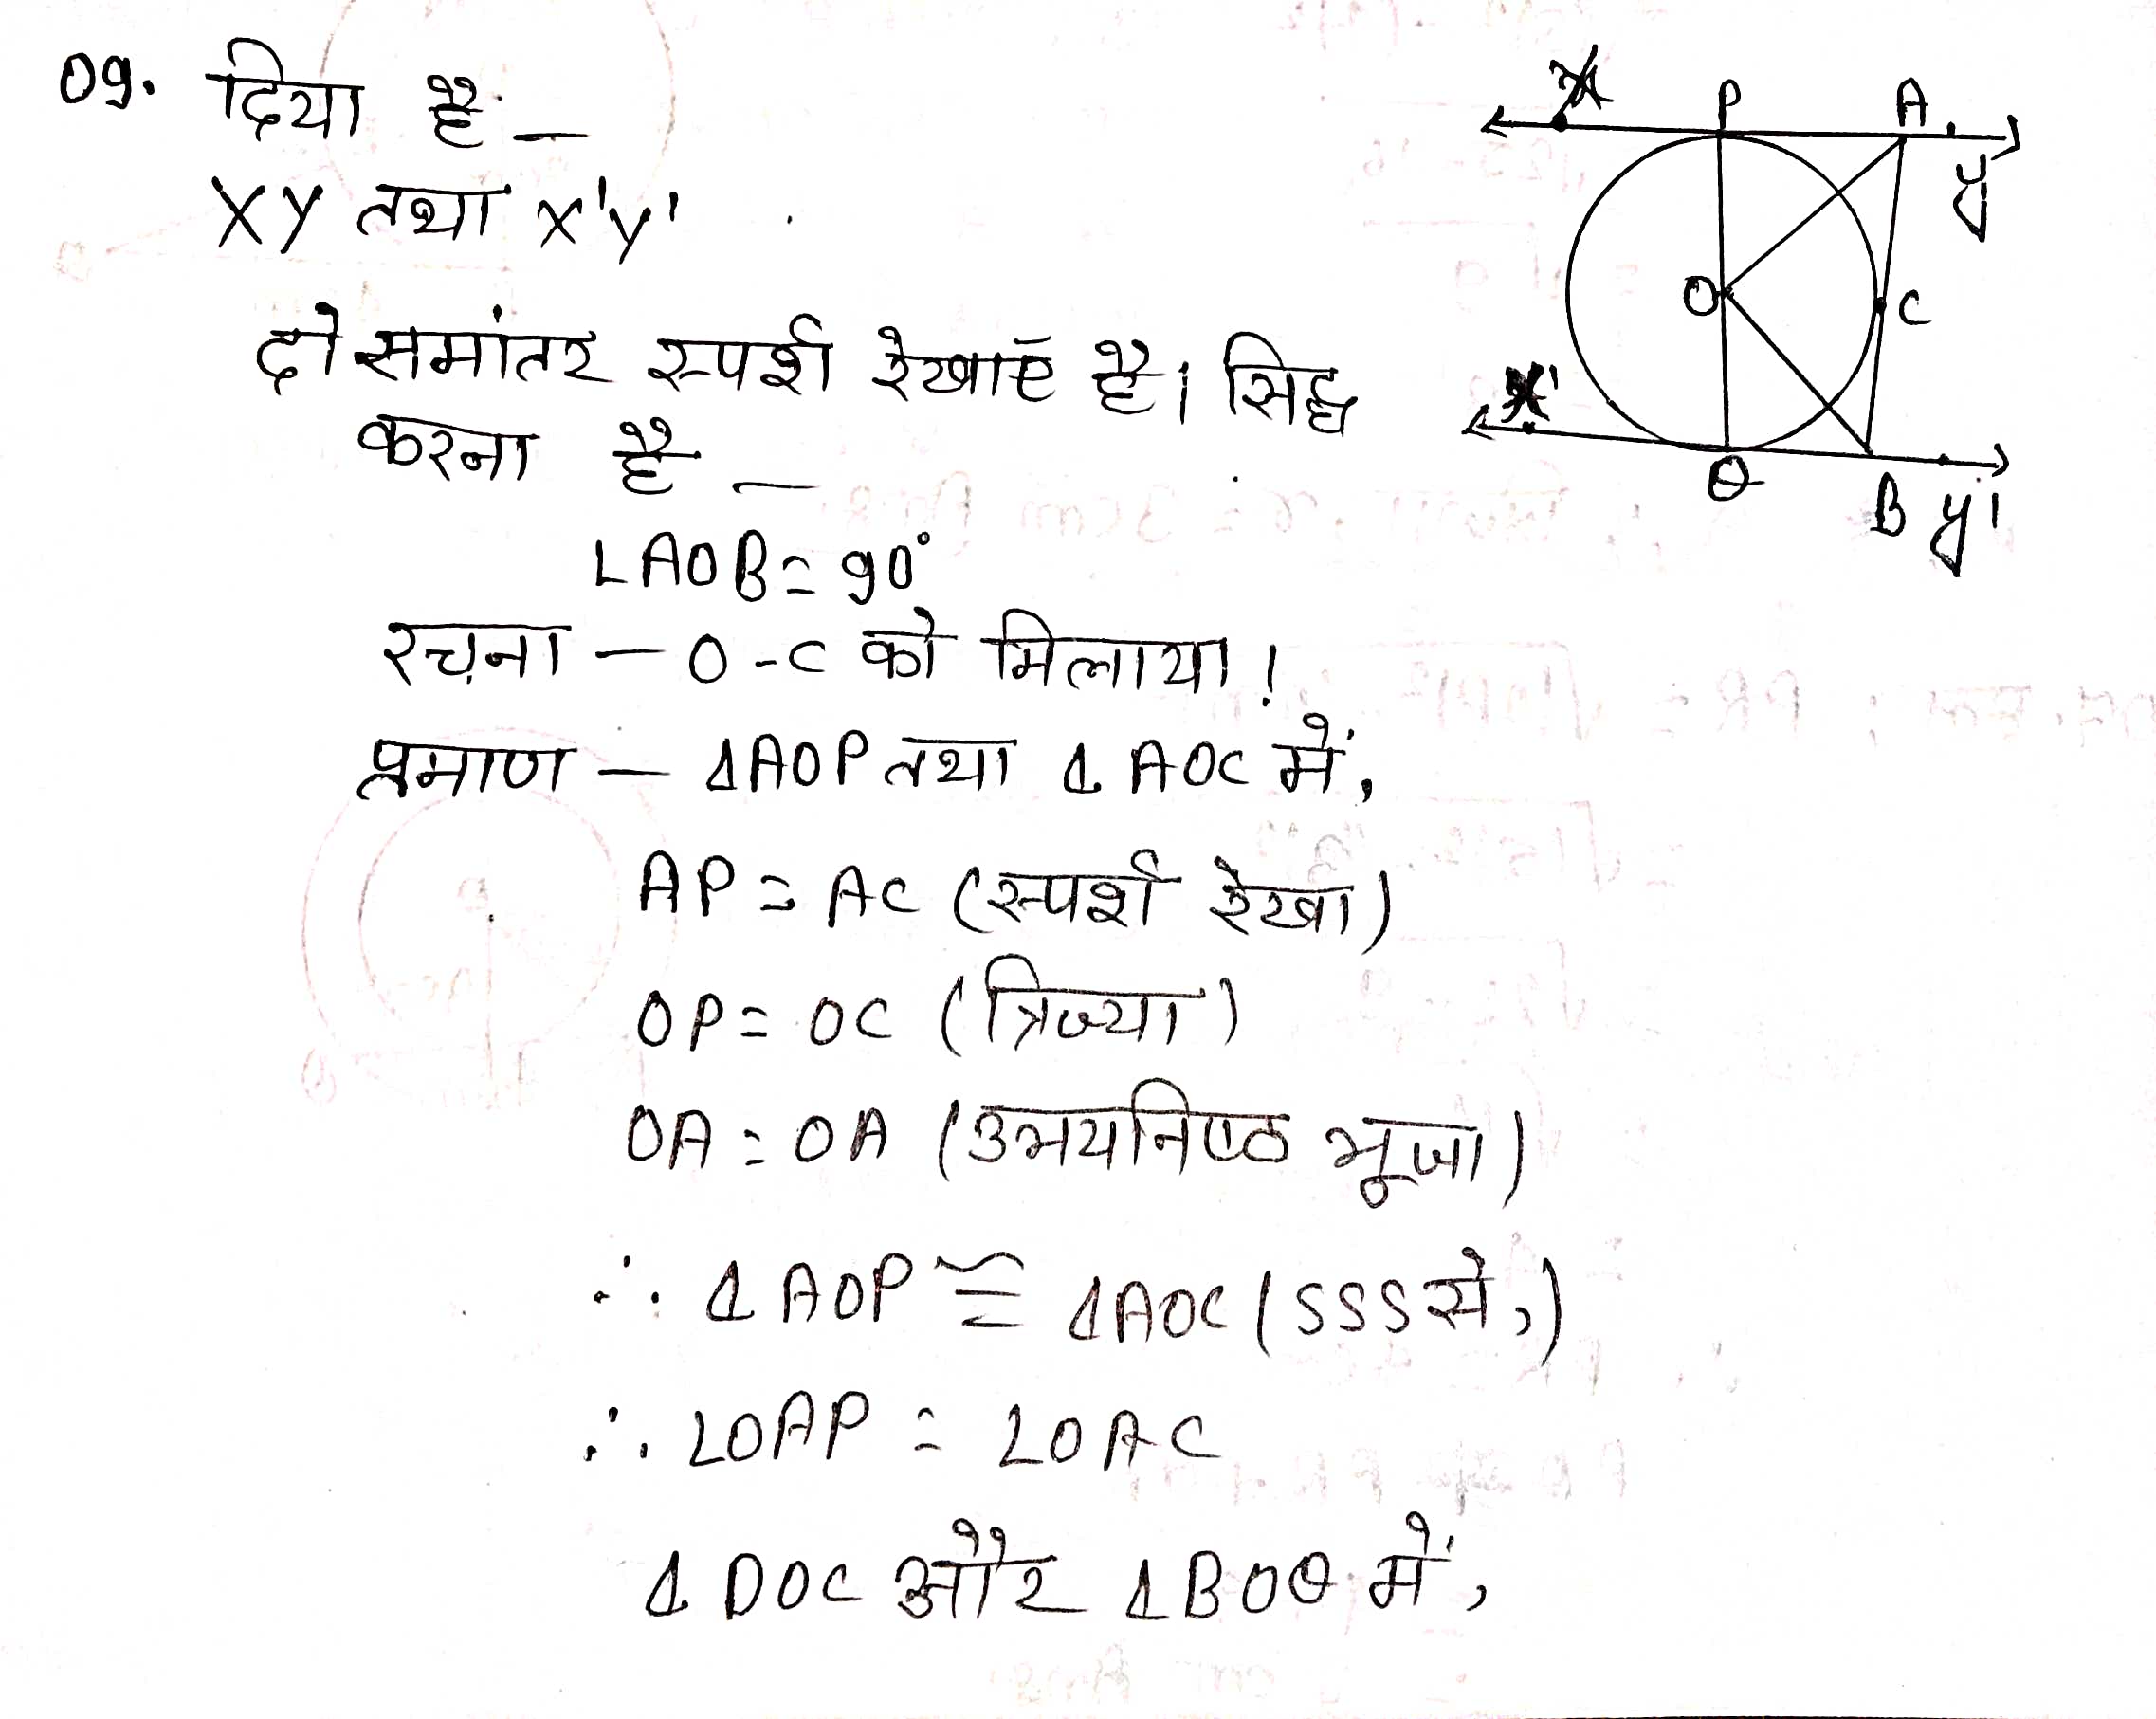 09. दिया है —
XY तथा X'Y'
दो समांतर स्पर्श रेखाएँ है। सिद्ध
करना है —
∠AOB = 90°
रचना — O-C को मिलाया।
प्रमाण — ΔAOP तथा ΔAOC में,
AP = AC (स्पर्श रेखा)
OP = OC (त्रिज्या)
OA = OA (उभयनिष्ठ भूजा)
∴ ΔAOP ≅ ΔAOC (SSS से,)
∴ ∠OAP = ∠OAC
ΔDOC और ΔBOQ में,
X P A
y
O C
X'
Q
B y'